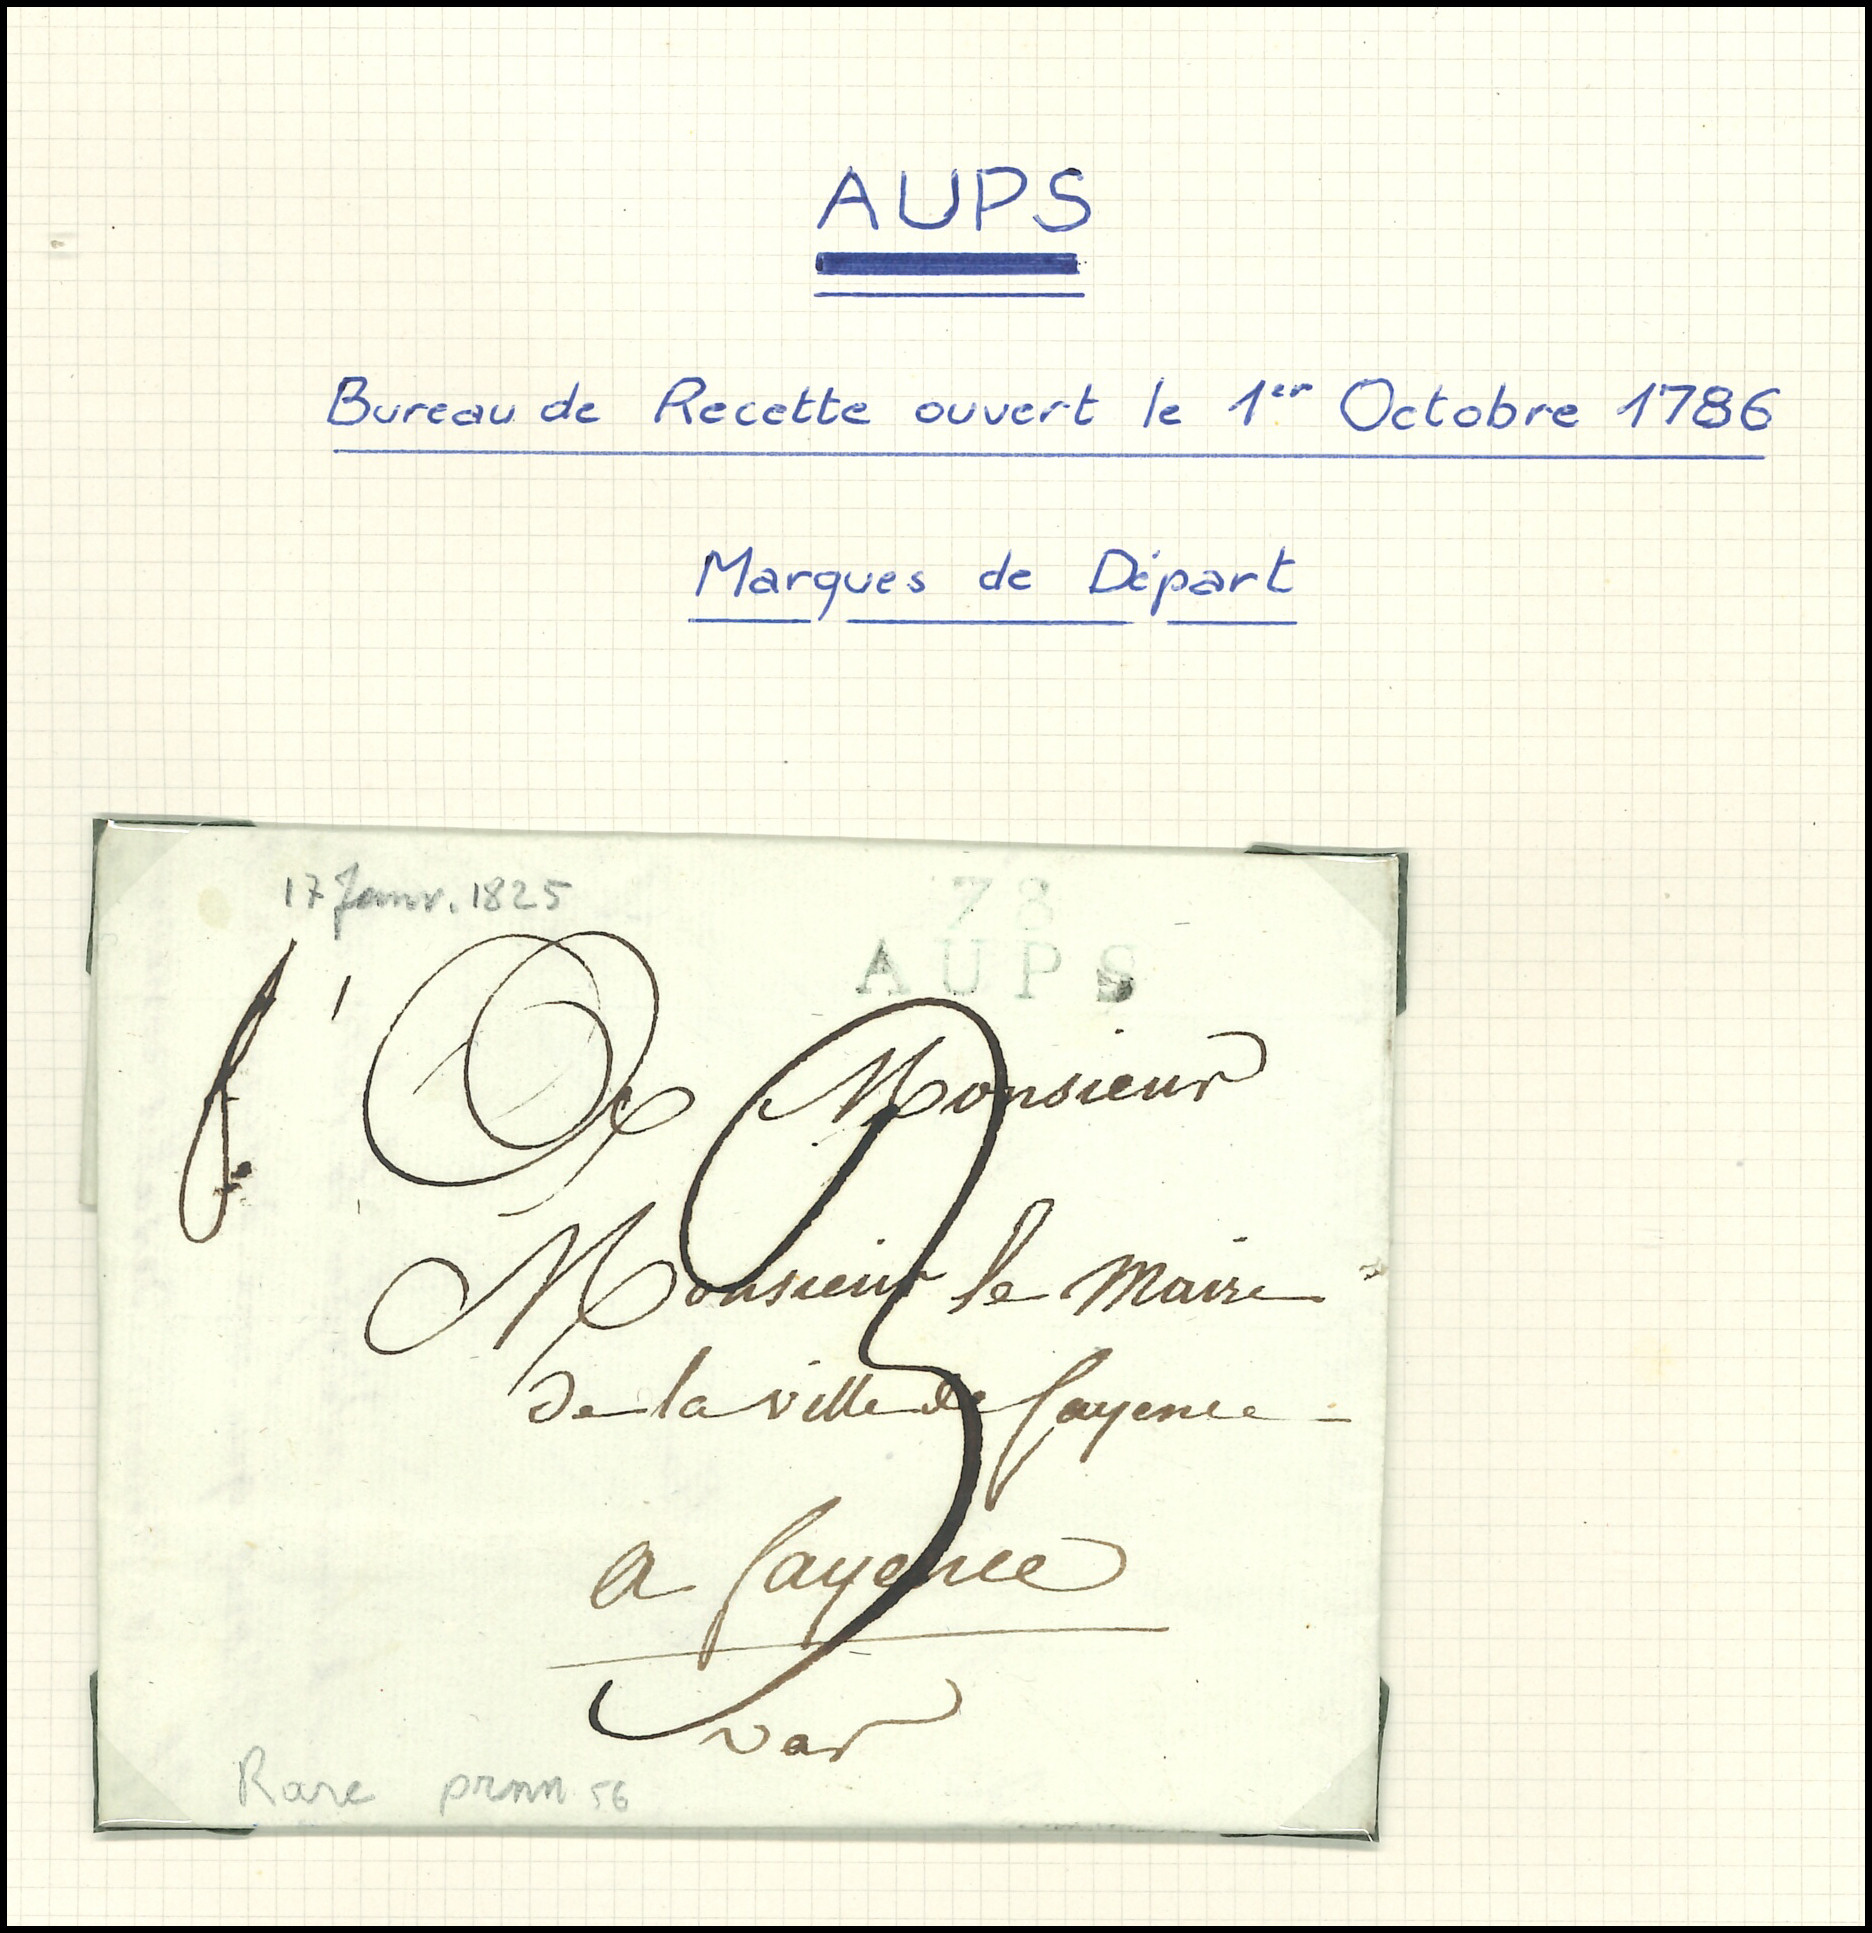 AUPS
Bureau de Recette ouvert le 1er Octobre 1786
Marques de Départ
17 Janv. 1825
78
AUPS
A Monsieur
3
Monsieur le Maire
de la ville de fayence
a fayence
var
Rare 56